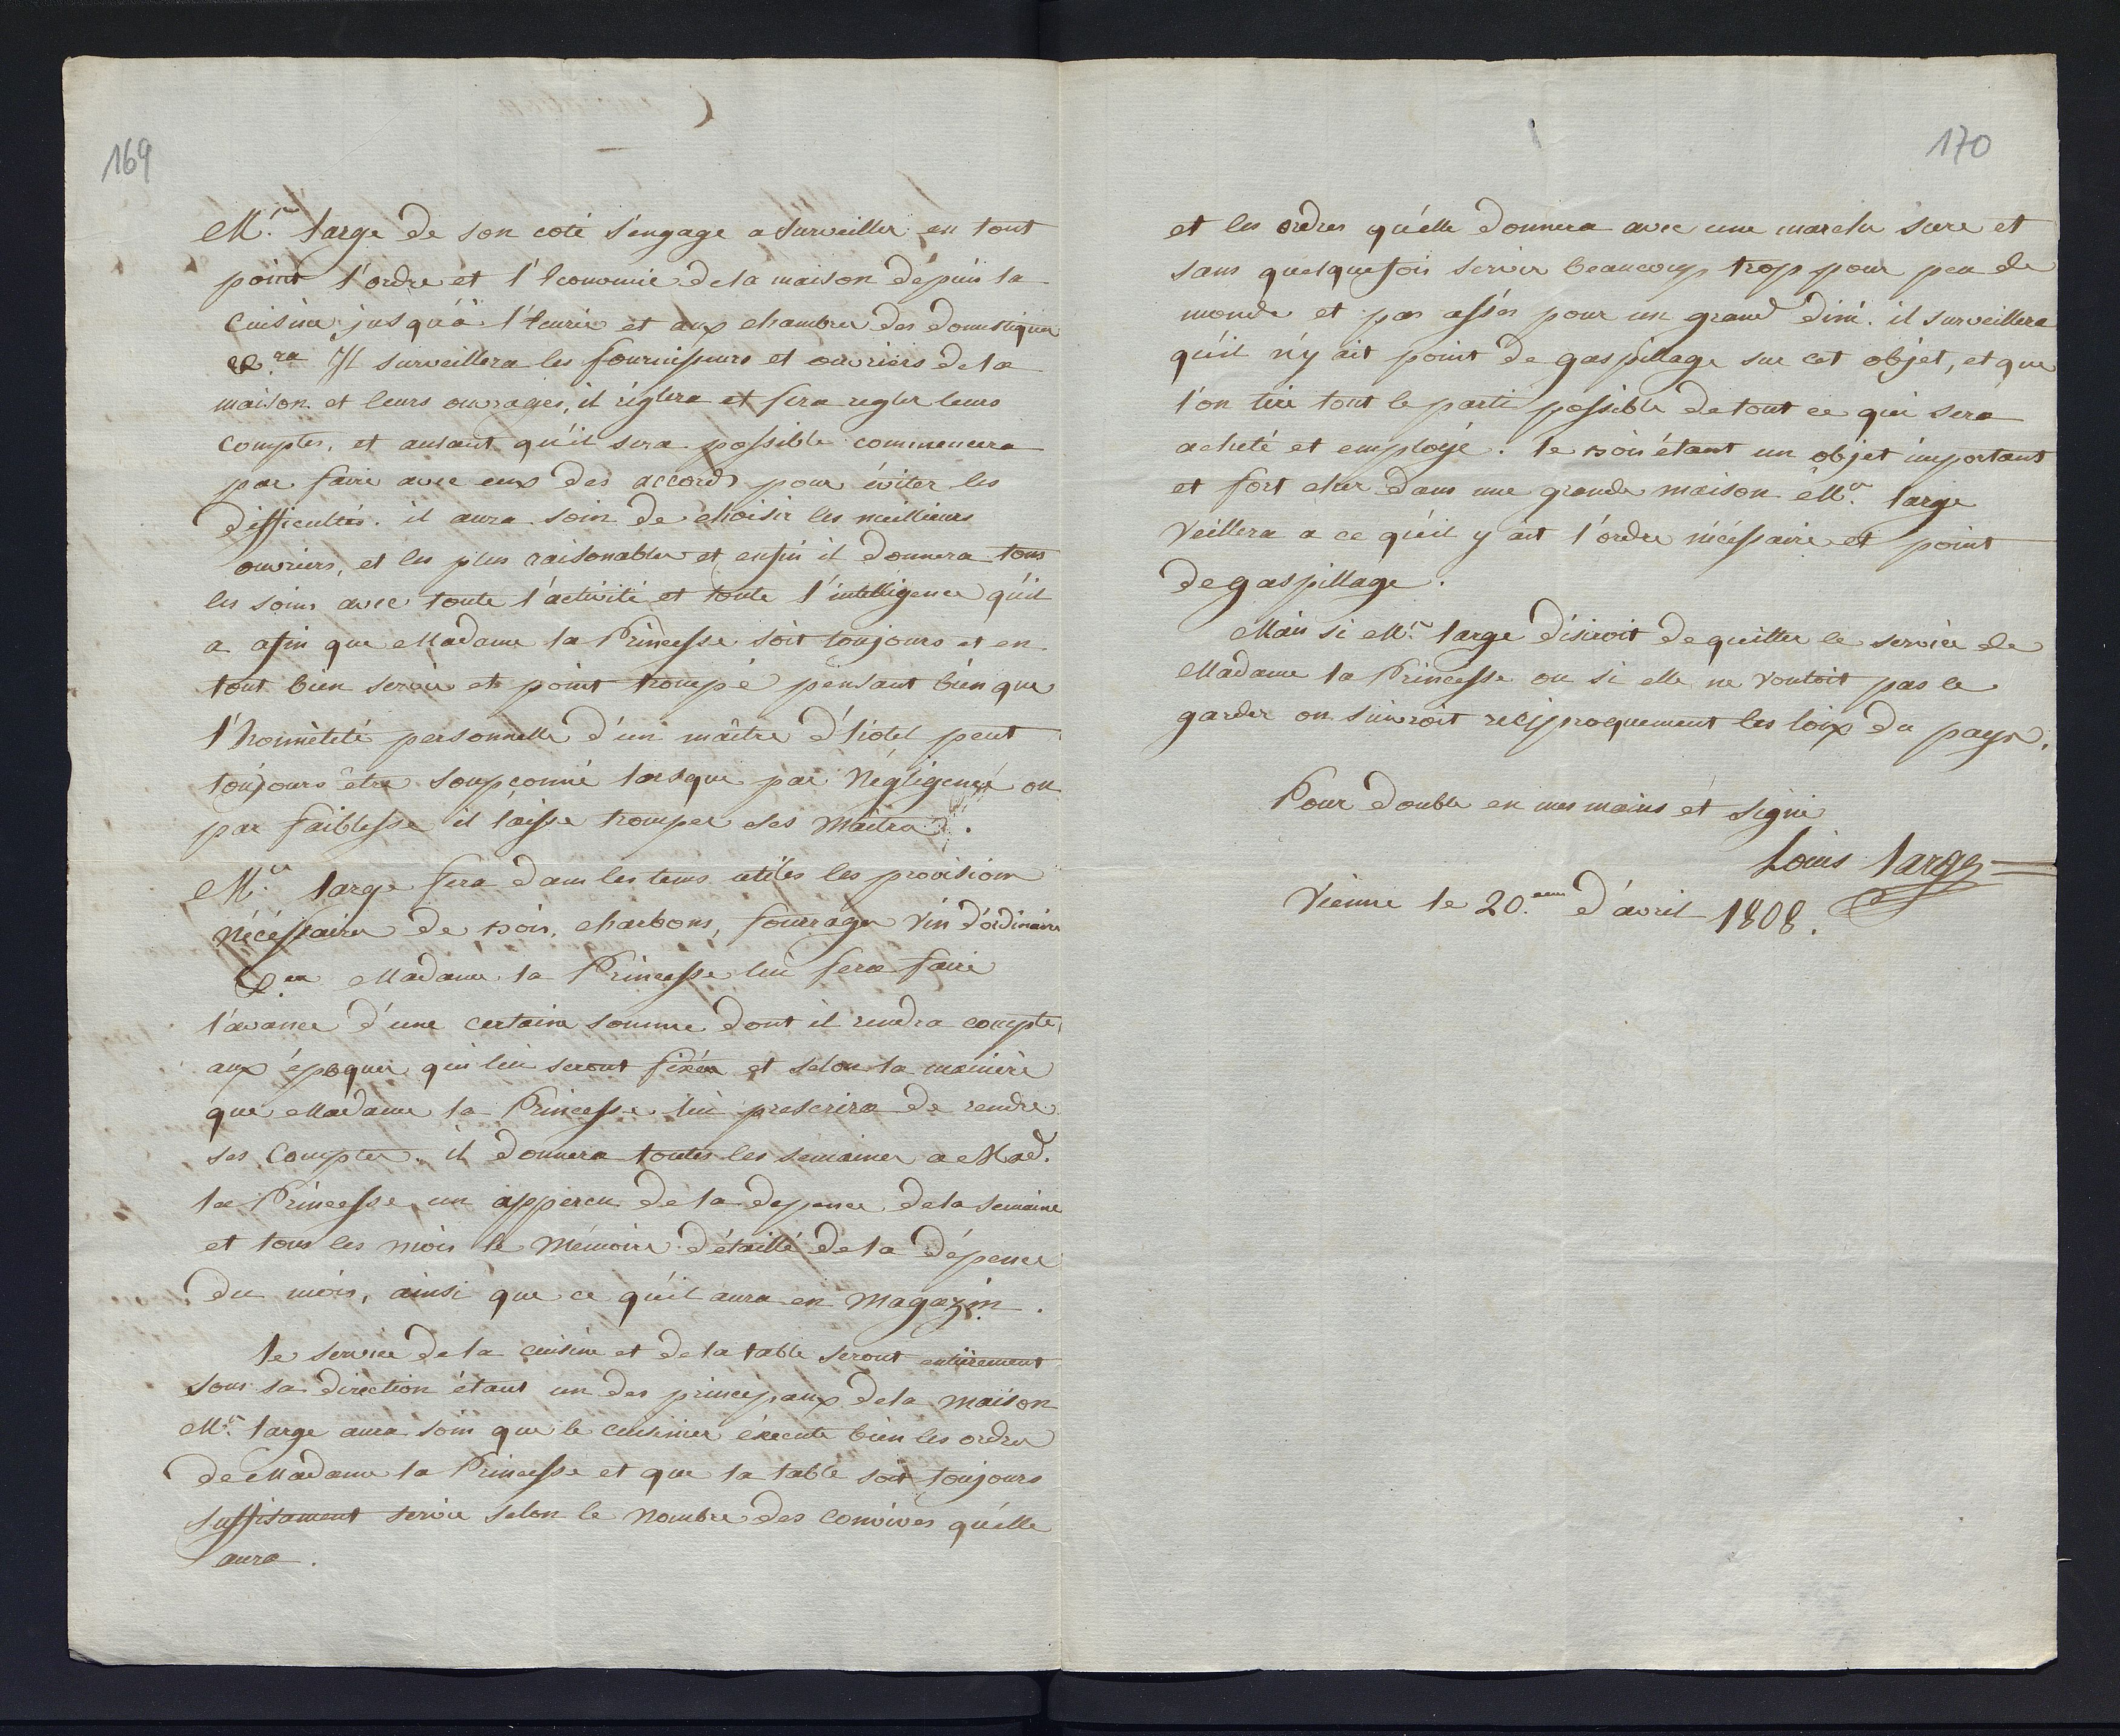 169
M.r large de son coté s'engage a surveiller en tout
point l'ordre et l'Economie de la maison dépuis la
Cuisine, jusqu'à l'Ecurie et aux chambres des domestiques
&.ra Il surveillera les fournisseurs et ouvriers de la
maison et leurs ouvrages, il réglera et fera regler leurs
comptes, et autant qu'il sera possible commencera
par faire avec eux des accords pour éviter les
difficultés. il aura soin de choisir les meilleurs
ouvriers, et les plus raisonables et enfin il donnera tous
les soins avec toute l'activité et toute l'intelligence qu'il
a afin que Madame la Princesse soit toujours et en
tout bien servie et point trompé pensant bien que
l'honnêteté personnelle d'un maître d'hotel peut
toujours être soupçonné lorsque par Négligence ou
par faiblesse il laisse tromper ses Maitres.
M.r large fera dans les tems utiles les provisions
nécéssaires de bois, charbons, fourrages vin d'ordinaire
&.ra Madame la Princesse lui fera faire
l'avance d'une certaine somme dont il rendra compte
aux époques qui lui seront fixées et selon la manière
que Madame la Princesse lui prescrira de rendre
ses Comptes. il donnera toutes les semaines a Mad.
la Princesse un apperçu de la depence de la semaine
et tous les mois le Mémoire détaillé de la dépence
du mois, ainsi que ce qu'il aura en Magazin.
le service de la cuisine et de la table seront entiérement
sous sa direction étant un des principaux de la maison
M.r large aura soin que le cuisinier éxecute bien les ordres
de Madame la Princesse et que la table soit toujours
suffisament servie selon le Nombre des convives qu'elle
aura.
170
et les ordres qu'elle donnera avec une marche sure et
sans quelquefois servir beaucoup trop pour peu de
monde et pas assés pour un grand diné. il surveillera
qu'il n'y ait point de gaspillage sur cet objet, et que
l'on tire tout le parti possible de tout ce qui sera
acheté et employé. le bois étant un objet important
et fort cher dans une grande maison M.r large
Veillera a ce qu'il y ait l'ordre nécéssaire et point
de gaspillage.
Mais si M.r large désiroit de quitter le service de
Madame la Princesse ou si elle ne vouloit pas le
garder on suivroit reciproquement les loix du pays.
Pour double en mes mains et signé
Louis large
Vienne le 20.eme d'avril 1808.